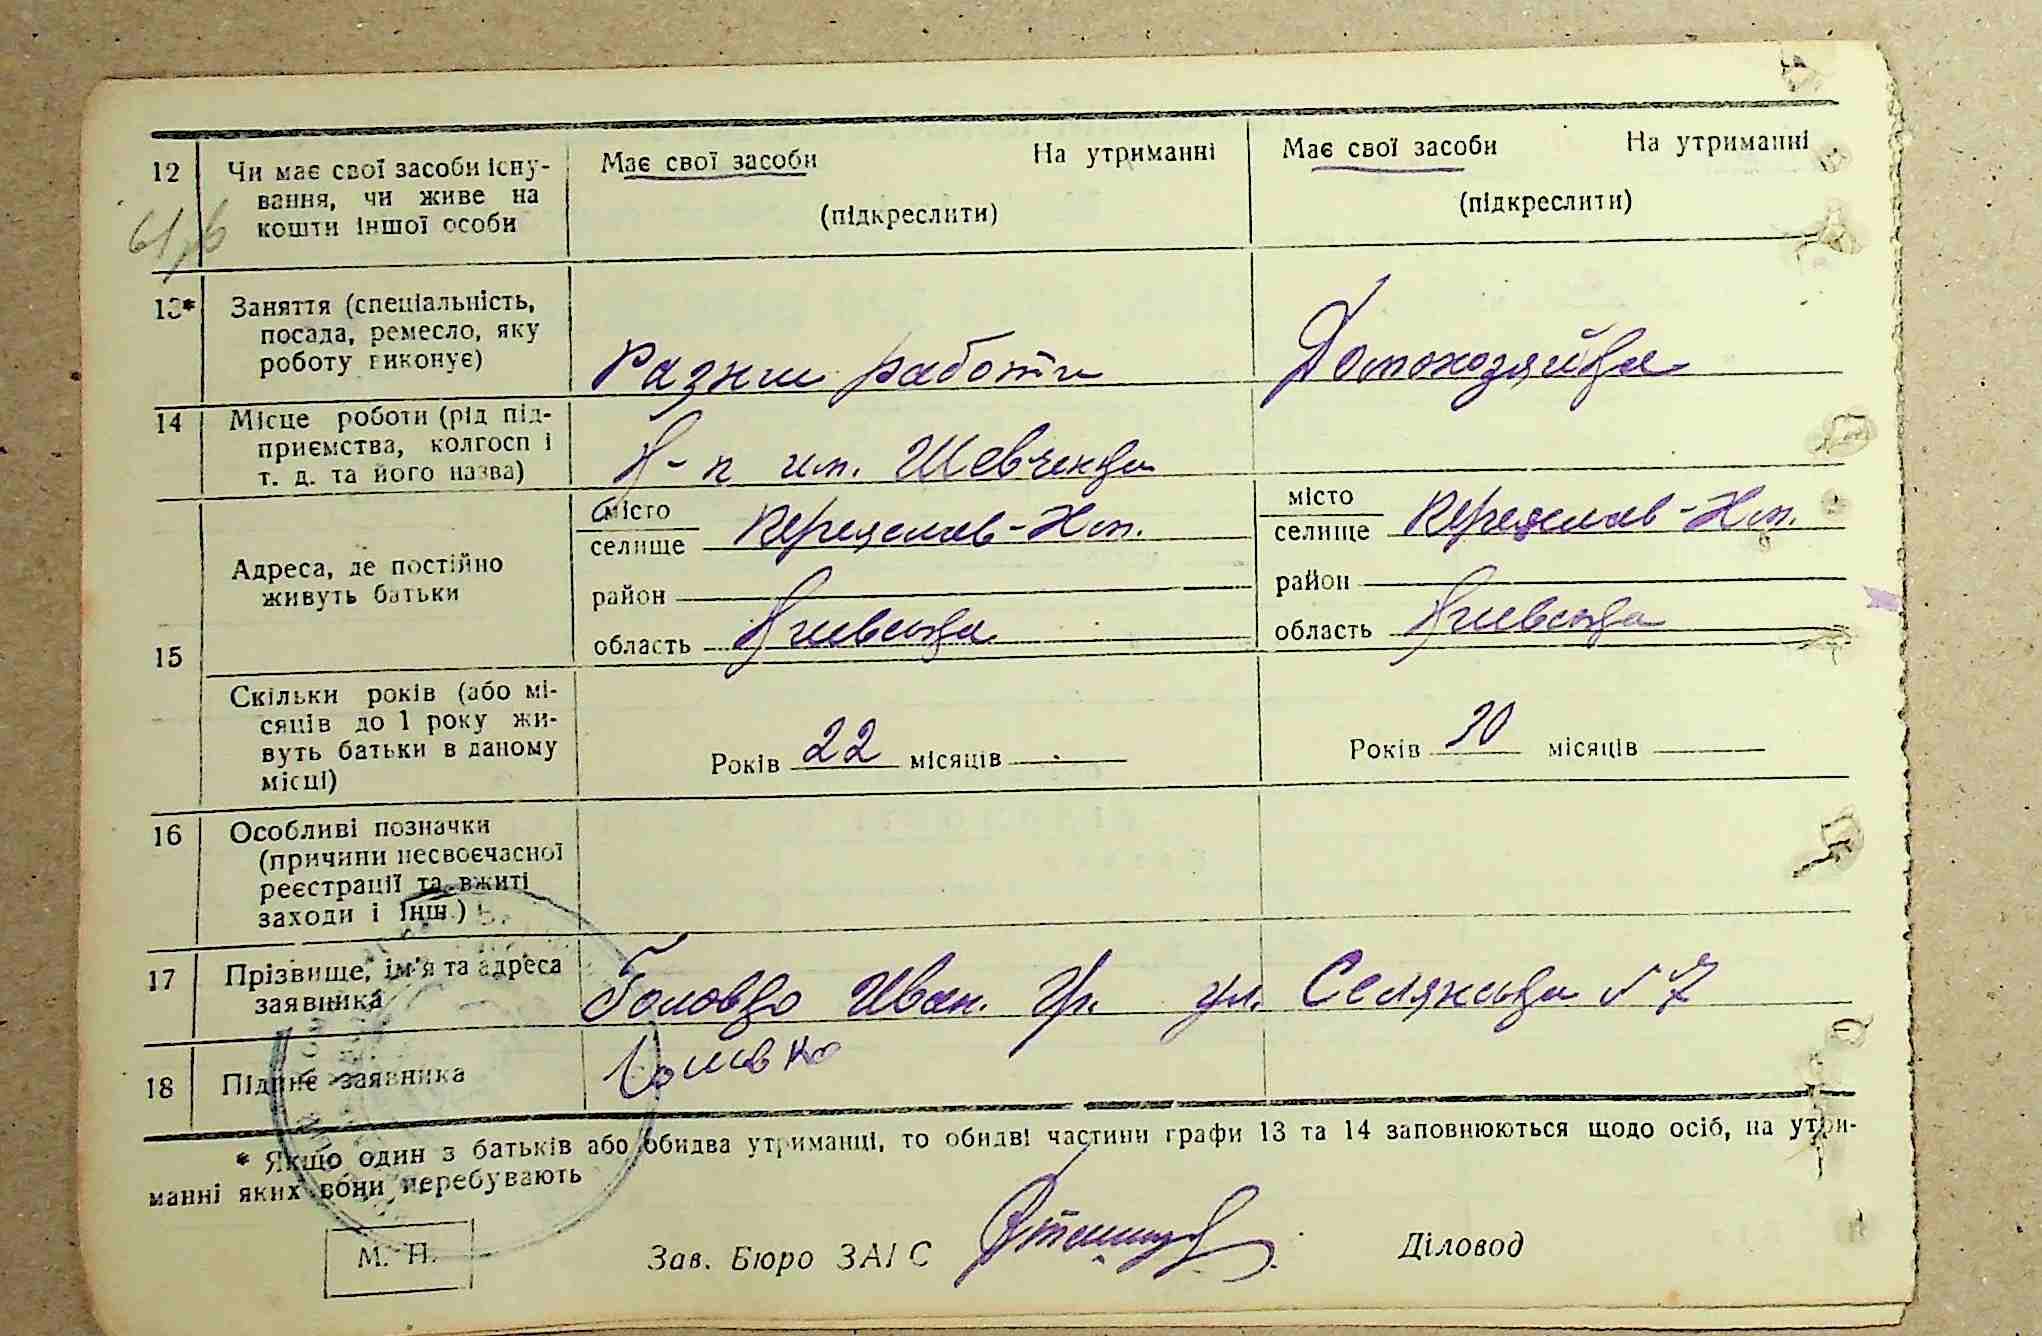 12 Чи має свої засоби існу- Має свої засоби На утриманні Має свої засоби На утриманні
вання, чи живе на (підкреслити) (підкреслити)
кошти іншої особи
13* Заняття (спеціальність,
посада, ремесло, яку
роботу виконує) Разние работи Домохозяйка
14 Місце роботи (рід під-
приємства, колгосп і К-п им. Шевченка
т. д. та його назва)
15 Адреса, де постійно
живуть батьки
місто
селище Переяслав-Хм. місто
селище Переяслав-Хм.
район район
область Киевская область Киевская
Скільки років (або мі-
сяців до 1 року жи-
вуть батьки в даному
місці)
Років 22 місяців Років місяців
16 Особливі позначки
(причини несвоєчасної
реєстрації та вжиті
заходи і інш.)
17 Прізвище, ім'я та адреса
заявника Головко Иван. Гр. ул. Селянська №7
18 Підпис заявника
* Якщо один з батьків або обидва утриманці, то обидві частини графи 13 та 14 заповнюються щодо осіб, на утри-
манні яких вони перебувають
М. П. Зав. Бюро ЗАГС Діловод